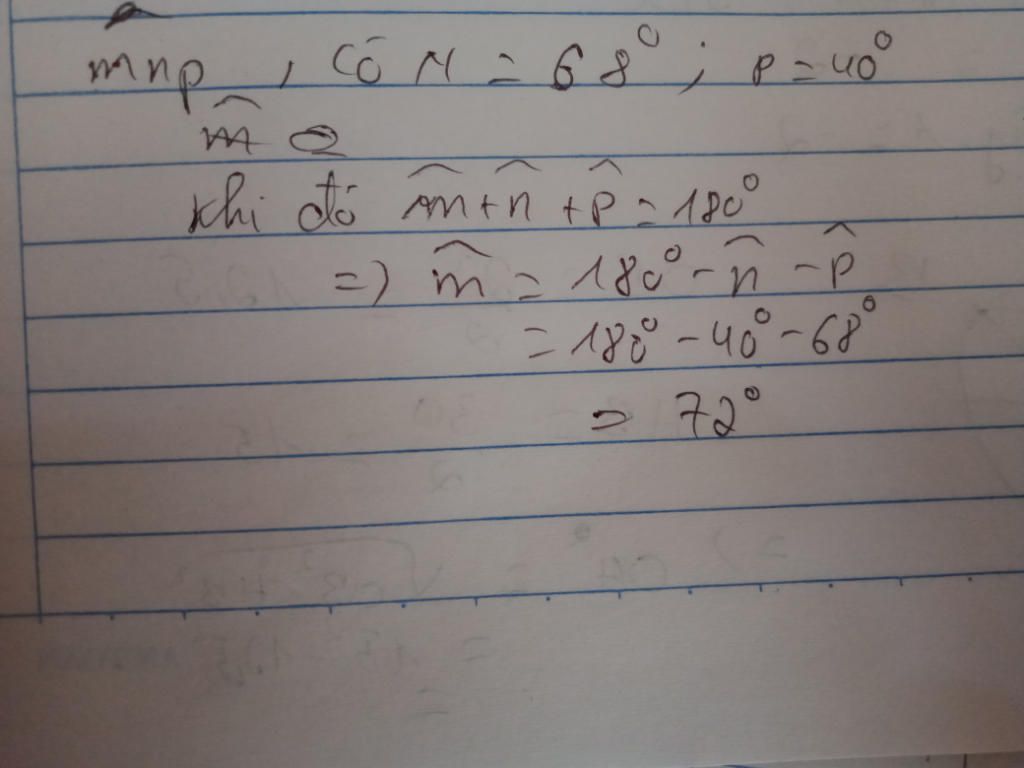 mnp, có N = 68°; P = 40°
m̂
khi đó m̂ + n̂ + p̂ = 180°
=) m̂ = 180° - n̂ - p̂
= 180° - 40° - 68°
= 72°